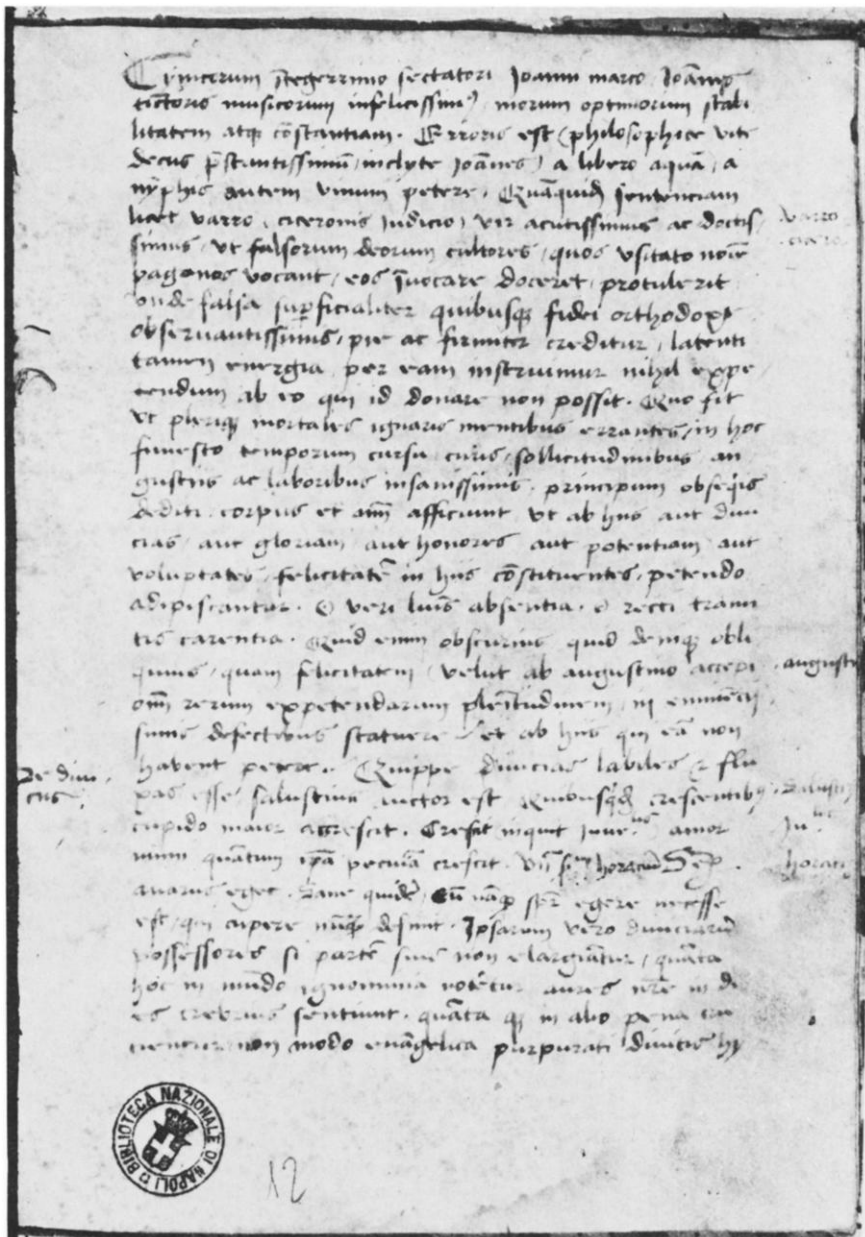 integerrimo sectatori Joanni marco Joannes
tinctoris musicorum infelicissimus morum optimorum stabi
litatem atque constantiam. Erroris est (philosophice vite
decus prestantissimum, inclyte Joannes) a libero aquam, a
nymphis autem vinum petere. Quamquidem sentenciam
licet varro, ciceronis iudicio, vir acutissimus ac doctis
simus, ut falsorum deorum cultores, quos usitato nomine
paganos vocant, eos invocare doceret, protulerit
unde falsa superficialiter quibusque fidei orthodoxe
observantissimis, pie ac firmiter creditur, latenti
tamen energia per eam instruimur nihil expe
tendum ab eo qui id donare non possit. Quo fit
ut plerique mortales ignaris mentibus errantes, in hoc
funesto temporum cursu, curis, sollicitudinibus an
gustiis ac laboribus insanissimis, principum obsequiis
dediti, corpus et animum afficiunt, ut ab hiis aut divi
cias, aut gloriam, aut honores, aut potentiam, aut
voluptates, felicitatem in hiis constituentes, petendo
adipiscantur. O veri luminis absentia. o recti trami
tis carentia. Quid enim obscurius quid denique obli
quius, quam felicitatem, velut ab augustino accepi
omnium rerum expetendarum plenitudinem, in
defectibus statuere, et ab hiis qui eam non
habent petere. Quippe divicias labiles et flu
xas esse salustius auctor est. Quibusquidem crescentibus
cupido maior accrescit. Crescit inquit amor
nummi quantum ipsa pecunia crescit. horacium Semper
avarus eget. Sane quidem, Cum namque semper egere necesse
est, qui cupere nunquam desinit. Ipsarum vero diviciarum
possessores si partem suis non elargiantur, quanta
hoc in mundo ignominia notentur aures nostre in di
es crebrius sentiunt. quanta que in alio pena cru
cientur, non modo evangelica purpurati divitis hy
varro
cicero
augusti
De divi
ciis
Salusti
Iuve
horati
BIBLIOTECA NAZIONALE DI NAPOLI
12